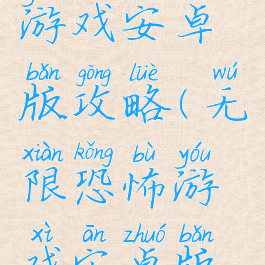 游戏安卓
bǎn gōng lüè wú
版攻略(无
xiàn kǒng bù yóu
限恐怖游
xì ān zhuó bǎn
戏安卓版